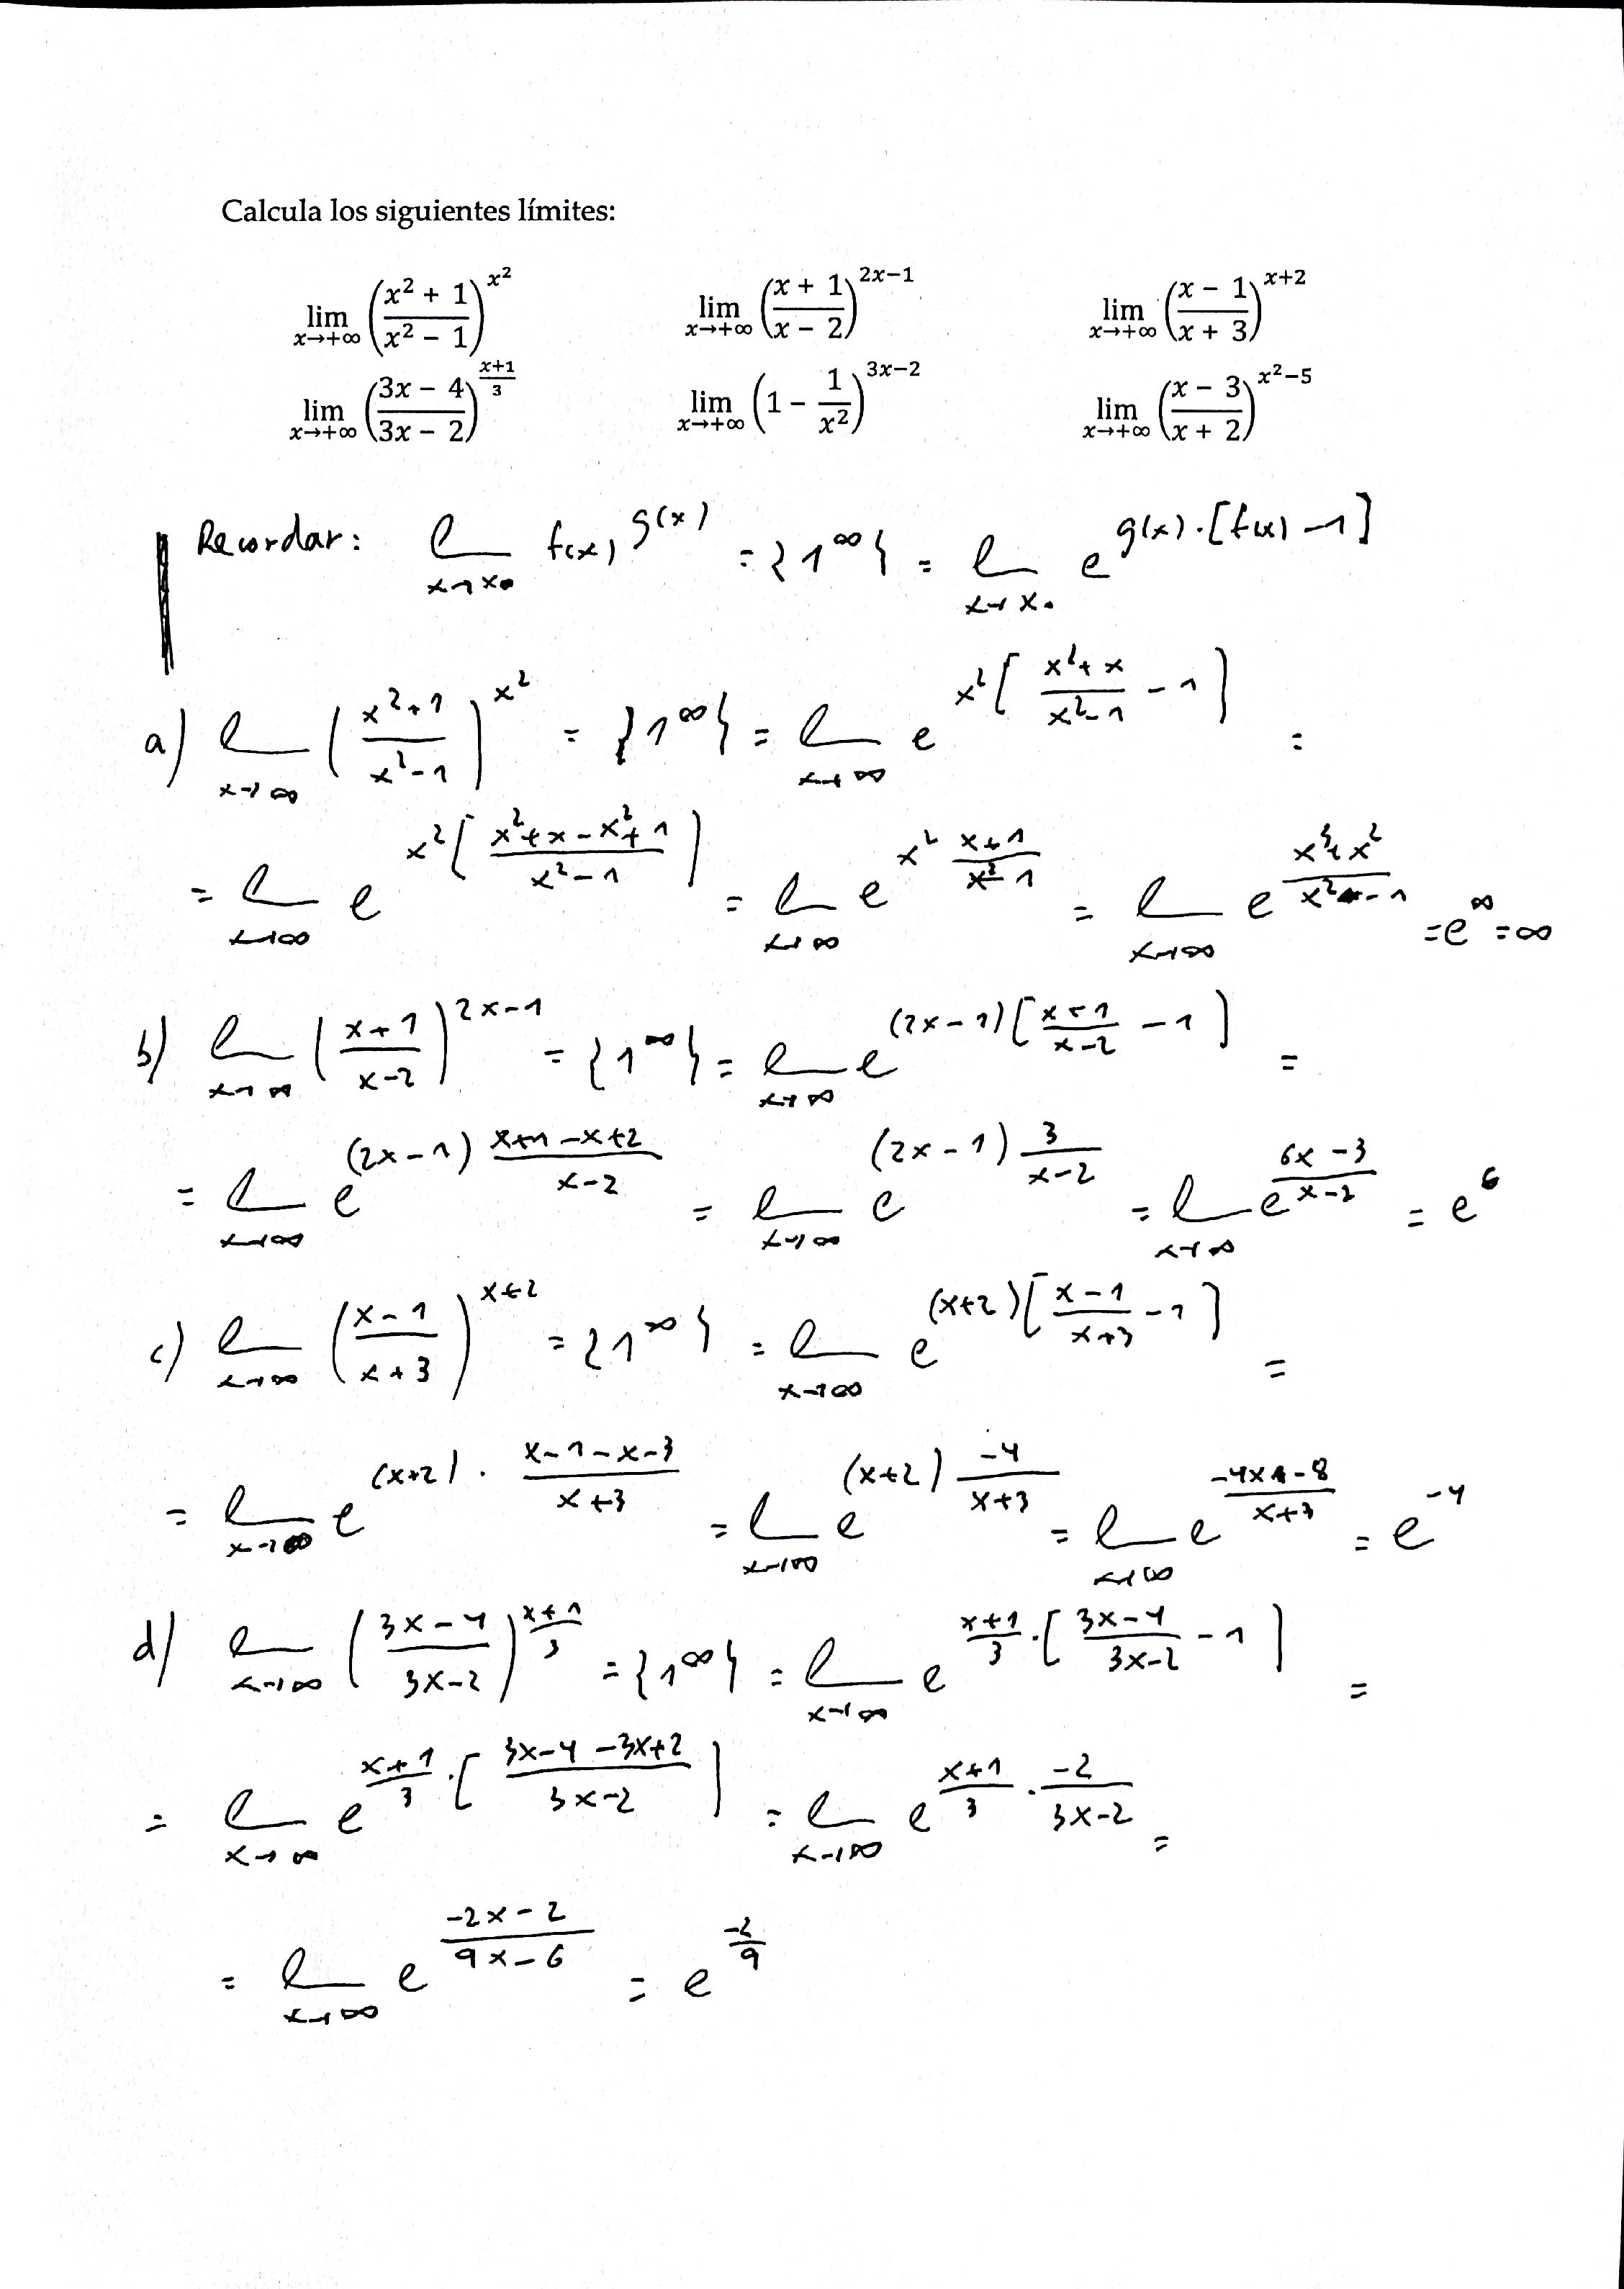 Calcula los siguientes límites:
lim x→+∞ ((x² + 1)/(x² − 1))^(x²)    lim x→+∞ ((x + 1)/(x − 2))^(2x−1)    lim x→+∞ ((x − 1)/(x + 3))^(x+2)
lim x→+∞ ((3x − 4)/(3x − 2))^((x+1)/3)    lim x→+∞ (1 − 1/x²)^(3x−2)    lim x→+∞ ((x − 3)/(x + 2))^(x²−5)
Recordar: l x→x₀ f(x)^(g(x)) = {1^∞} = l x→x₀ e^(g(x)·[f(x) −1])
a) l x→∞ ((x²+1)/(x²−1))^(x²) = {1^∞} = l x→∞ e^(x²[(x²+x)/(x²−1) − 1]) =
= l x→∞ e^(x²[(x²+x−x²+1)/(x²−1)]) = l x→∞ e^(x² (x+1)/(x²−1)) = l x→∞ e^((x³+x²)/(x²−1)) = e^∞ = ∞
b) l x→∞ ((x+1)/(x−2))^(2x−1) = {1^∞} = l x→∞ e^((2x−1)[(x+1)/(x−2) − 1]) =
= l x→∞ e^((2x−1) (x+1−x+2)/(x−2)) = l x→∞ e^((2x−1) 3/(x−2)) = l x→∞ e^((6x−3)/(x−2)) = e^6
c) l x→∞ ((x−1)/(x+3))^(x+2) = {1^∞} = l x→∞ e^((x+2)[(x−1)/(x+3) − 1]) =
= l x→∞ e^((x+2)·(x−1−x−3)/(x+3)) = l x→∞ e^((x+2) −4/(x+3)) = l x→∞ e^((−4x−8)/(x+3)) = e^(−4)
d) l x→∞ ((3x−4)/(3x−2))^((x+1)/3) = {1^∞} = l x→∞ e^((x+1)/3·[(3x−4)/(3x−2) − 1]) =
= l x→∞ e^((x+1)/3·[(3x−4−3x+2)/(3x−2)]) = l x→∞ e^((x+1)/3·−2/(3x−2)) =
= l x→∞ e^((−2x−2)/(9x−6)) = e^(−2/9)